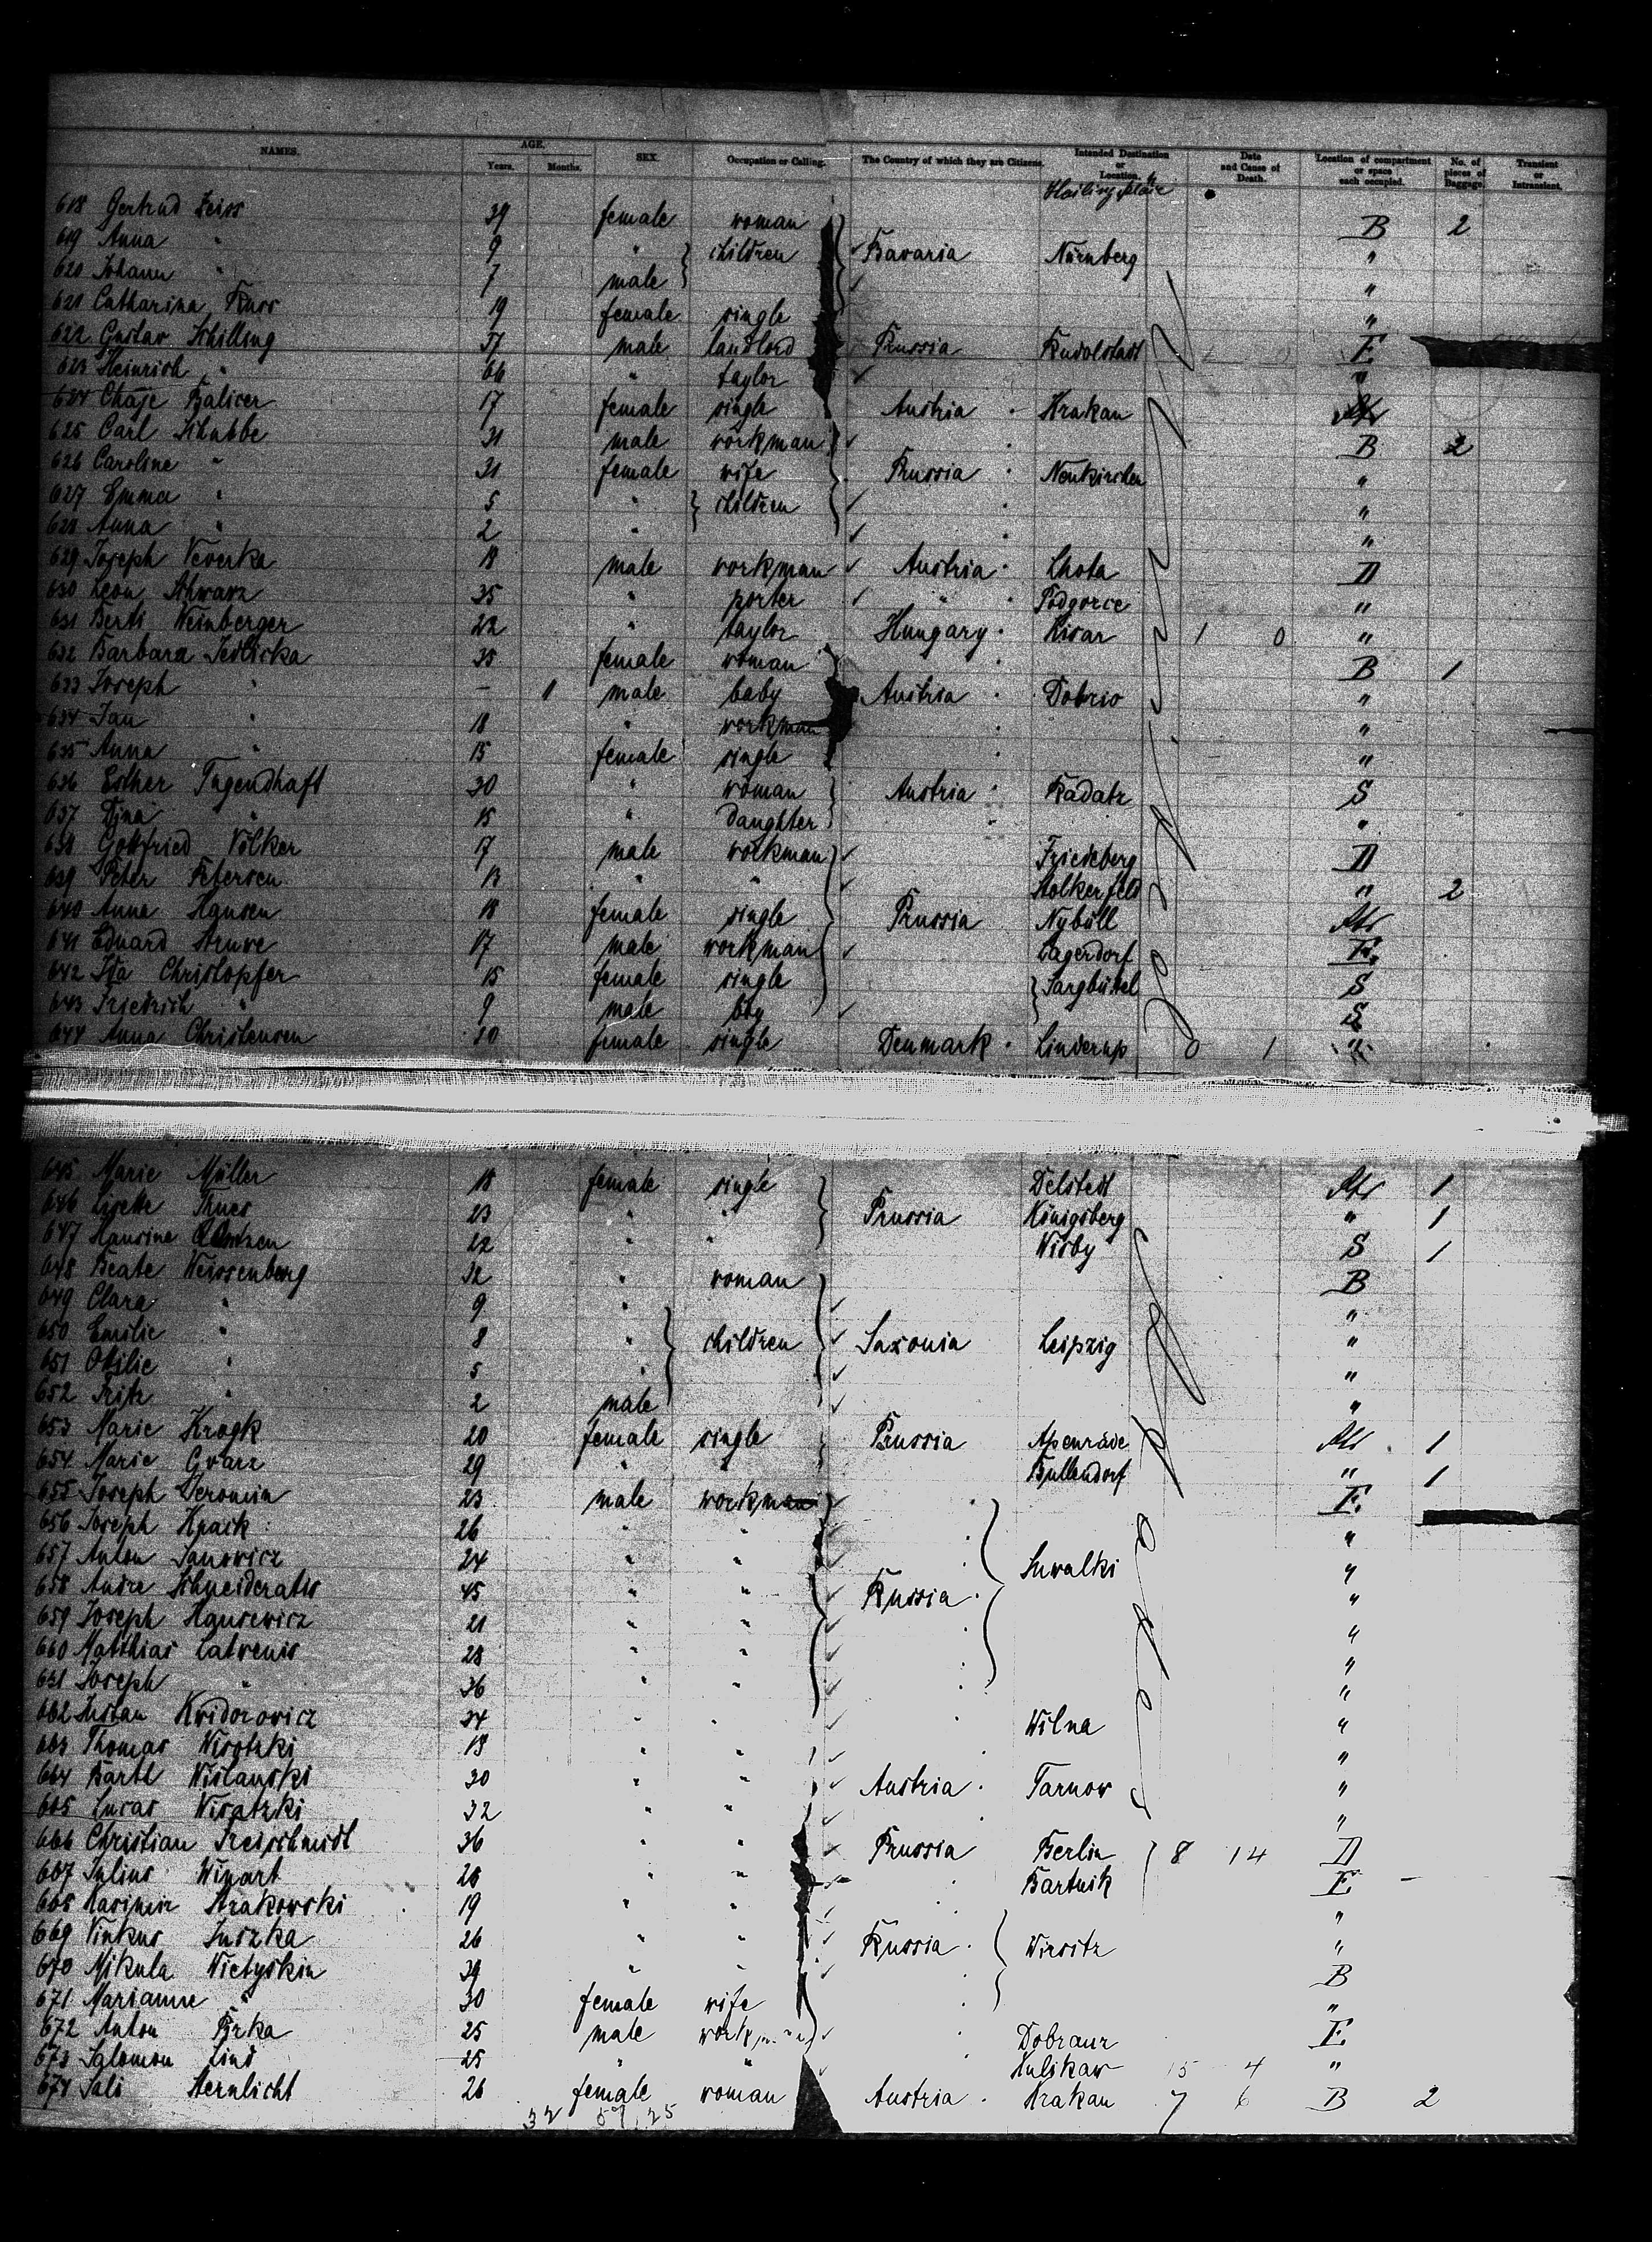 NAMES. AGE. SEX. Occupation or Calling. The Country of which they are Citizens. Intended Destination or Location. Date and Cause of Death. Location of compartment or space each occupied. No. of pieces of Baggage. Transient or Intransient.
Years. Months.
618 Gertrud Zeiss 39 female woman B 2
619 Anna " 9 " children Bavaria Nürnberg "
620 Johann " 7 male "
621 Catharina 19 female single "
622 Gustav Schilling 37 male landlord Prussia Rudolstadt E
623 Heinrich " 66 " taylor "
624 Chaje Balicer 17 female single Austria Krakau
625 Carl Schubbe 31 male workman B 2
626 Caroline " 31 female wife Prussia Neukirchen "
627 Emma " 5 " children "
628 Anna " 2 " "
629 Joseph Veverka 18 male workman Austria Lhota D
630 Leon Schwarz 35 " porter " Podgorce "
631 Berti Weinberger 22 " taylor Hungary Kisar 1 0 "
632 Barbara Jedlicka 35 female woman B 1
633 Joseph " - 1 male baby Austria "
634 Jan " 18 " workman "
635 Anna " 15 female single "
636 Esther Tugendhaft 30 " woman Austria Radatz S
637 " 15 " Daughter "
638 Gottfried Völker 17 male workman Friedeberg D
639 Peter Petersen " " " 2
640 Anna Hansen 18 female single Prussia Nyböll
641 Eduard Struve 17 male workman Lagerdorf E.
642 Ida Christopfer 15 female single S
643 Friedrich " 9 male boy S
644 Anna Christensen 30 female single Denmark Linderup 0 1 "
645 Marie Müller 18 female single 1
646 23 " " Prussia Königsberg " 1
647 22 " " Wisby S 1
648 Beate Weissenberg 32 " woman B
649 Clara " 9 " "
650 Emilie " 8 " children Saxonia Leipzig "
651 Otilie " 5 " "
652 Fritz " 2 male "
653 Marie Krogk 20 female single Prussia Apenrade 1
654 Marie 29 " Bullendorf " 1
655 Joseph 23 male workman E.
656 Joseph 26 " " "
657 Anton Janowicz 24 " " Suwalki "
658 Andre Schneideratis 45 " " Russia "
659 Joseph 21 " " "
660 Matthias Latvenis 28 " " "
631 Joseph " 36 " " "
662 Kridorowicz 34 " " Wilna "
663 Thomas Wisotzki 18 " " "
664 Bartl Wislanski 30 " " Austria Tarnow "
665 Lucas Wisotzki 32 " " "
666 Christian 36 " " Prussia Berlin 8 14 D
667 Julius Winart 26 " " Bartnik E
668 Kasimir Strakowski 19 " " "
669 Vinkus Juszka 26 " " Russia Wirsitz "
670 Nikula Wietyskin 39 " " B
671 Marianne " 30 female wife "
672 Anton 25 male Dobranz E
673 Salomon Lind 25 " " Kulikaw 15 4 "
674 Sali Sternlicht 26 female woman Austria Krakau 7 6 B 2
32 57,25